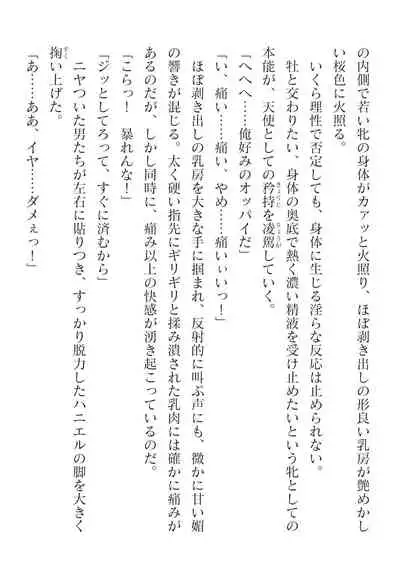 の内側で若い牝の身体がカァッと火照り、ほぼ剥き出しの形良い乳房が艶めかし
い桜色に火照る。
いくら理性で否定しても、身体に生じる淫らな反応は止められない。
牡と交わりたい、身体の奥底で熱く濃い精液を受け止めたいという牝としての
本能が、天使としての矜持を凌駕していく。
「へへへ……俺好みのオッパイだ」
「い、痛い……痛い、やめ……痛いぃいっ！」
ほぼ剥き出しの乳房を大きな手に掴まれ、反射的に叫ぶ声にも、微かに甘い媚
の響きが混じる。太く硬い指先にギリギリと揉み潰された乳肉には確かに痛みが
あるのだが、しかし同時に、痛み以上の快感が湧き起こっているのだ。
「こらっ！　暴れんな！」
「ジッとしてろって、すぐに済むから」
ニヤついた男たちが左右に貼りつき、すっかり脱力したハニエルの脚を大きく
掬い上げた。
「あ……ああ、イヤ……ダメぇっ！」